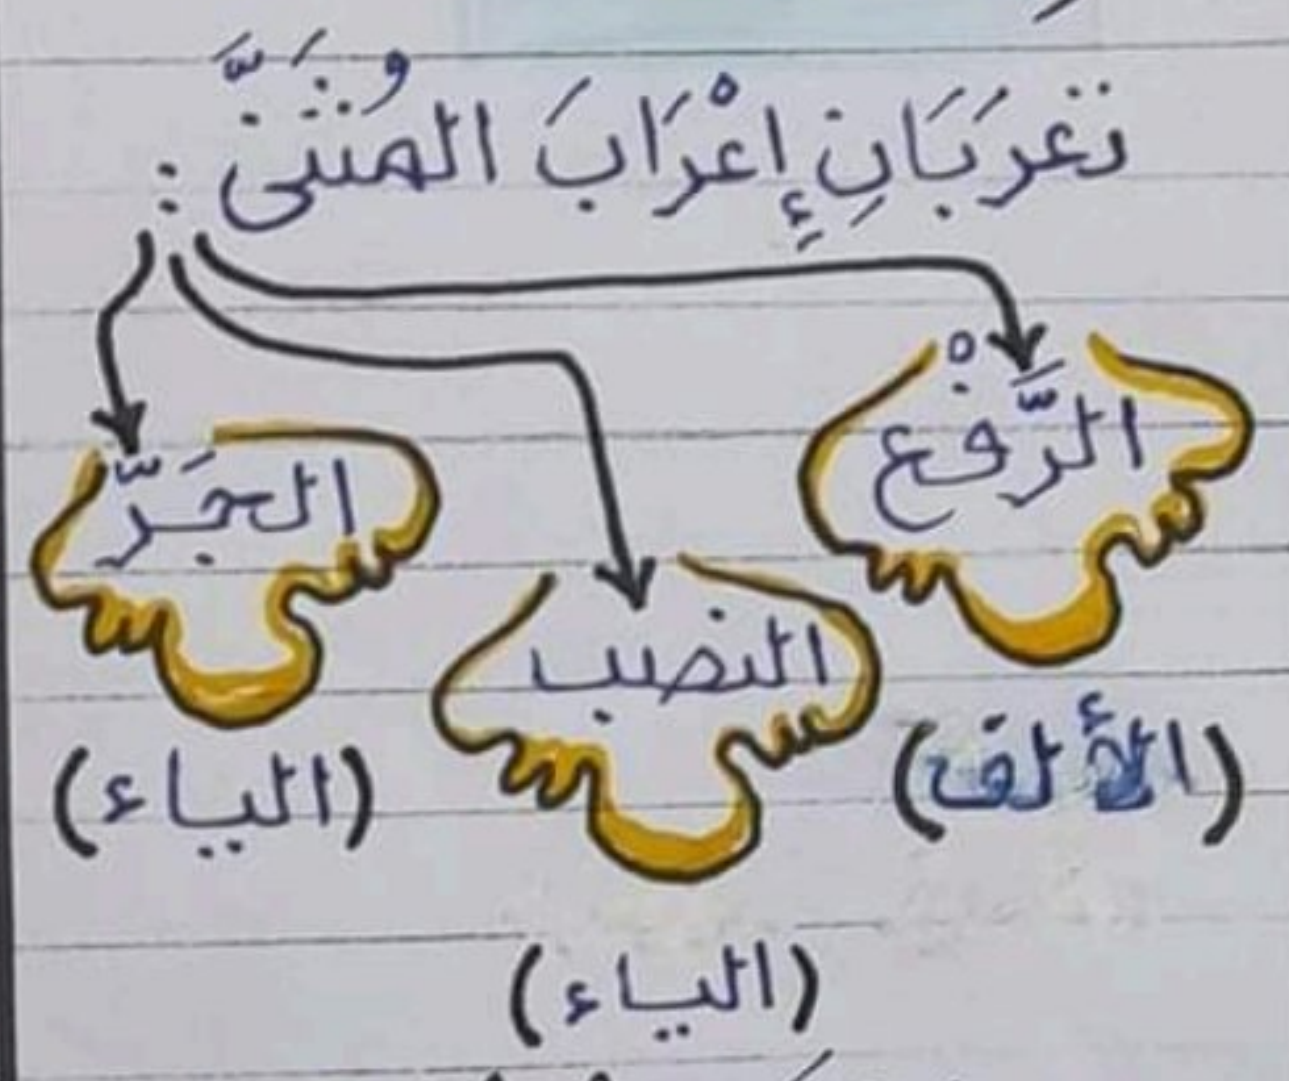 تُعْرَبَانِ إِعْرَابَ المُثَنَّى :
الرَّفْع
الجَرّ
النصب
(الألف)
(الياء)
(الياء)